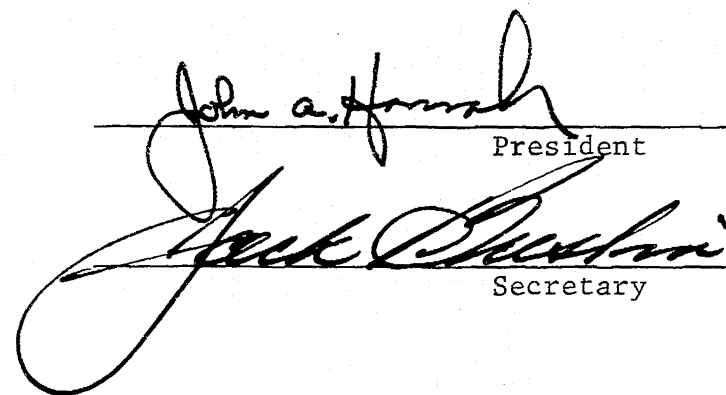 John A. Hannah
President
Jack Breslin
Secretary